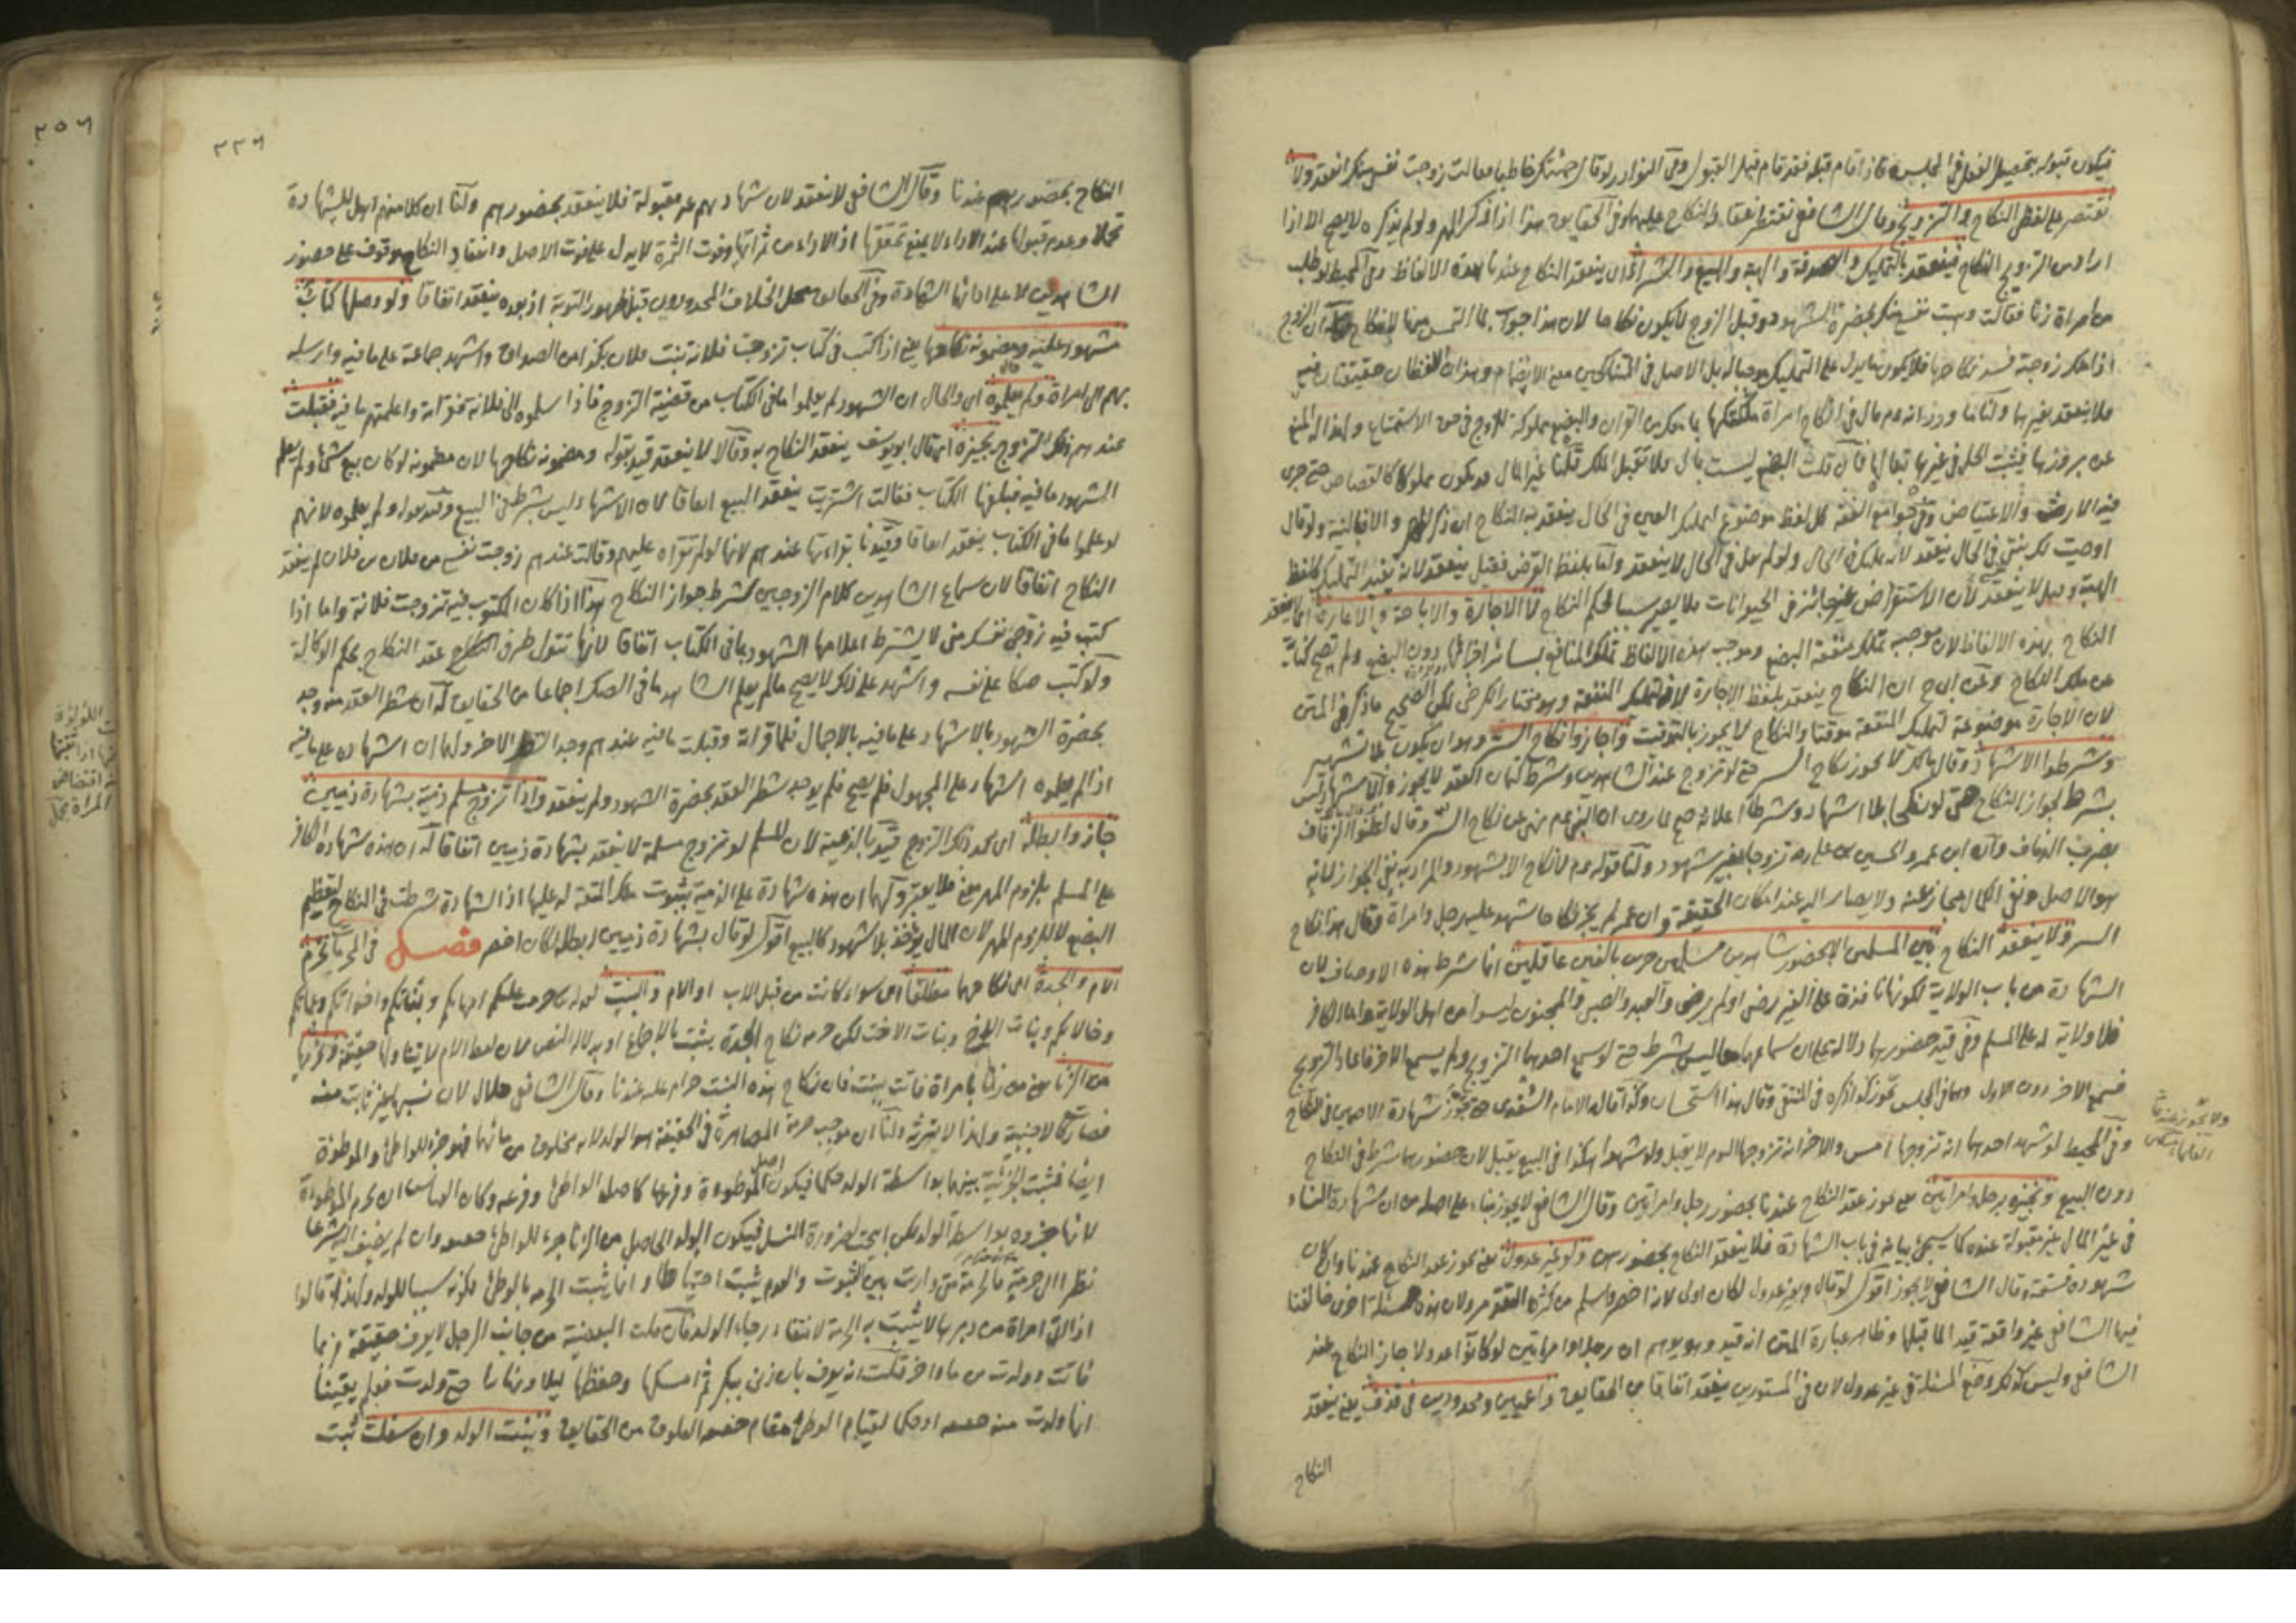 فيكون قبوله بتحصيل الفعل في المجلس فاذا قام قبله فقد قام قبل القبول وفى النوادر لو قال جئتك خاطبا فقالت زوجت نفسى منك انعقد ولا
نقتصر على لفظى النكاح والتزويج وقال الشافعى نقتصر انعقاد النكاح عليهما وفى الحقايق هذا اذا ذكر المهر ولو لم يذكره لا يصح الا اذا
اراد من التزويج النكاح فينعقد بالتمليك والصدقة والهبة والبيع والشراء اى ينعقد النكاح عندنا بهذه الالفاظ وفى المحيط لو طلب
من امراة زنا فقالت وهبت نفسى منك بحضرة الشهود وقبل الزوج لا يكون نكاحا لان هذا جواب لما التمس منها لا نكاح له ان الزوج
اذا ملك زوجته فسد نكاحها فلا يكون ما يدل على التمليك موجبا له بل الاصل فى المتناكحين معنى الانضمام وهذان اللفظان حقيقتان فيه
فلا ينعقد بغيرهما ولنا ما ورد انه عم قال فى انكاح امراة ملكتكها بما معك من القران والبضع مملوك للزوج فى حق الاستمتاع ولهذا له المنع
عن بروزها فيثبت الحل فى غيرها تبعا لها فان قلت البضع ليست بمال فلا تقبل الملك قلنا غير المال قد يكون مملوكا كالقصاص حتى جرى
فيه الارث والاعتياض وفى جوامع الفقه كل لفظ موضوع لتمليك العين فى الحال ينعقد به النكاح ان ذكر المهر والا فبالنية ولو قال
اوصيت لك بنتى فى الحال ينعقد لانه تمليك فى الحال ولو لم يقل فى الحال لا ينعقد واما بلفظ القرض فقيل ينعقد لانه يفيد التمليك كلفظ
الهبة وقيل لا ينعقد لان الاستقراض غير جائز فى الحيوانات فلا يصير سببا لحكم النكاح لا الاجارة والاباحة والاعارة اى لا ينعقد
النكاح بهذه الالفاظ لان موجبه تملك متعة البضع وموجب هذه الالفاظ تملك المنافع لسائر اجزائها دون البضع ولم تصح كناية
عن ملك النكاح وعن ابى ح ان النكاح ينعقد بلفظ الاجارة لانها لتمليك المنفعة وهو مختار الكرخى لكن الصحيح ما ذكر فى المتن
لان الاجارة موضوعة لتمليك المنفعة موقتا والنكاح لا يجوز بالتوقيت واجازوا نكاح السر وهو ان يكون بلا تشهير
وشرطوا الاشهاد وقال مالك لا يجوز نكاح السر حتى لو تزوج عند الشاهدين وشرط كتمان العقد لا يجوز والاشهاد ليس
بشرط لجواز النكاح حتى لو نكحها بلا اشهاد وشرطا اعلانه صح لما روى ان النبى عم نهى عن نكاح السر وقال اعلنوا الزفاف
بضرب الدفاف وانه ابن عمرو الحسين بن على رضه تزوجا بغير شهود ولنا قوله عم لا نكاح الا بشهود والمراد به نفى الجواز لانه
هو الاصل ونفى الكمال مجاز عنه ولا يصار اليه عند امكان الحقيقة وان عمر لم يجز نكاحا شهد عليه رجل وامراة وقال هذا نكاح
السر ولا ينعقد النكاح بين المسلمين الا بحضور شاهدين مسلمين حرين بالغين عاقلين انما شرط هذه الاوصاف لان
الشهادة من باب الولاية لكونها نافذة على الغير رضى او لم يرضى والعبد والصبى والمجنون ليسوا من اهل الولاية واما الكافر
فلا ولاية له على المسلم وفى قيد حضورهما دلالة على ان سماعهما معا ليس بشرط حتى لو سمع احدهما التزويج ولم يسمع الاخر فاعاد التزويج
فسمع الاخر دون الاول وهما فى المجلس يجوز كذا ذكره فى المنتقى وقال هذا استحسان وكذا قاله الامام السغدى حتى جوز شهادة الاصمين فى النكاح
وفى المحيط لو شهد احدهما انه تزوجها امس والاخر انه تزوجها اليوم لا يقبل ولو شهدا هكذا فى البيع يقبل لان حضورهما شرط فى النكاح
دون البيع ونجيزه برجل وامراتين يعنى يجوز عقد النكاح عندنا بحضور رجل وامراتين وقال الشافعى لا يجوز بناء على اصله من ان شهادة النساء
فى غير المال غير مقبولة عنده كما سيجئ بيانه فى باب الشهادة فلا ينعقد النكاح بحضورهن ولو غير عدول يعنى يجوز عقد النكاح عندنا وان كان
شهوده فسقة وقال الشافعى لا يجوز اقول لو قال وبغير عدول لكان اولى لانه اخصر واسلم من كثرة التقدير ولان هذه مسئلة اخرى خالفنا
فيها الشافعى غير واقعة قيدا لما قبلها وظاهر عبارة المتن انه قيد وهو يوهم ان رجلا وامراتين لو كانوا عدولا جاز النكاح عند
الشافعى وليس كذلك وضع المسئلة فى غير عدول لان فى المستورين ينعقد اتفاقا من الحقايق واعميين ومحدودين فى قذف يعنى ينعقد
النكاح
ولا يجوز عندنا
٢٢٦
النكاح بحضورهم عندنا وقال الشافعى لا ينعقد لان شهادتهم غير مقبولة فلا ينعقد بحضورهم ولنا ان كلا منهم اهل للشهادة
تحملا وعدم قبولها عند الاداء لا يمنع تحققها اذ الاداء من ثمراتها وفوت الثمرة لا يدل على فوت الاصل وانعقاد النكاح موقوف على حضور
الشاهدين لا على ادائهما الشهادة وفى الحقايق محل الخلاف المحدودون قبل ظهور التوبة اذ بعده ينعقد اتفاقا ولو وصلها كتاب
مشهود عليه ومضمونه نكاحها يعنى اذا كتب فى كتاب تزوجت فلانة بنت فلان بكذا من الصداق واشهد جماعة على ما فيه وارسله
بهم الى امراة ولم يعلموه اى والحال ان الشهود لم يعلموا ما فى الكتاب من قضية التزوج فاذا سلموه الى فلانة فقراته واعلمتهم ما فيه فقبلت
عندهم ذلك التزوج يجيزه اى قال ابو يوسف ينعقد النكاح به وقالا لا ينعقد قيد بقوله ومضمونه نكاحها لان مضمونه لو كان بيع شئ ولم يعلم
الشهود ما فيه فبلغها الكتاب فقالت اشتريت ينعقد البيع اتفاقا لان الاشهاد ليس بشرط فى البيع وقيد بقوله ولم يعلموه لانهم
لو علموا ما فى الكتاب ينعقد اتفاقا وقيدنا بقراءتها عندهم لانها لو لم تقراه عليهم وقالت عندهم زوجت نفسى من فلان بن فلان لم ينعقد
النكاح اتفاقا لان سماع الشاهدين كلام الزوجين شرط جواز النكاح هذا اذا كان المكتوب فيه تزوجت فلانة واما اذا
كتب فيه زوجى نفسك منى لا يشترط اعلامها الشهود بما فى الكتاب اتفاقا لانها تتولى طرفى النكاح عقد النكاح بحكم الوكالة
ولو كتب صكا على نفسه واشهد على ذلك لا يصح مالم يعلم الشاهد ما فى الصك اجماعا من الحقايق له ان شطر العقد منه وجد
بحضرة الشهود بالاشهاد على ما فيه بالاجمال فلما قراته وقبلت ما فيه عندهم وجد الشطر الاخر ولهما ان الشهادة على ما فيه
اذا لم يعلموه اشهاد على المجهول فلم يصح فلم يوجد شطر العقد بحضرة الشهود ولم ينعقد واذا تزوج مسلم ذمية بشهادة ذميين
جاز وابطله اى محمد ذلك التزوج قيد بالذمية لان المسلم لو تزوج مسلمة لا ينعقد بشهادة ذميين اتفاقا له ان هذه شهادة الكافر
على المسلم بلزوم المهر عنى فلا يعتبر ولهما ان هذه شهادة على الذمية بثبوت ملك المتعة له عليها اذ الشهادة شرطت فى النكاح لتعظيم
البضع لا للزوم المهر لان المال يؤخذ بلا شهود كالبيع اقول لو قال بشهادة ذميين ابطله لكان اخصر فصل فى المحرمات تحرم
الام والجدة اى نكاحهما مطلقا اى سواء كانت من قبل الاب او الام والبنت لقوله تع حرمت عليكم امهاتكم وبناتكم واخواتكم وعماتكم
وخالاتكم وبنات الاخ وبنات الاخت لكن حرمة نكاح الجدة يثبت بالاجماع او بدلالة النص لان لفظ الام لا يتناولها حقيقة ونحرمها
من الزنا يعنى من زنا بامراة فاتت ببنت فان نكاح هذه البنت حرام عليه عندنا وقال الشافعى حلال لان نسبها غير ثابت منه
فصارت كالاجنبية ولهذا لا يتوث ولنا ان موجب حرمة المصاهرة فى الحقيقة هو الولد لانه مخلوق من مائهما فهو جزء للواطئ والموطؤة
ايضا فتثبت الجزئية بينهما بواسطة الولد حكما فيكون اصل الموطوءة وفرعها كاصل الواطئ وفرعه وكان القياس ان تحرم الموطوءة
لانها جزوه بواسطة الولد لكن ابيحت لضرورة النسل فيكون الولد الحاصل من الزنا جزء للواطئ حقيقة وان لم يضف اليه شرعا
نظرا الى حرمته فالحرمة متى دارت بين الثبوت والعدم يثبت احتياطا وانما يثبت الحرمة بالوطئ لكونه سببا للولد ولهذا قالوا
اذا اتى امراة من دبرها لا يثبت به الحرمة لانتفاء رجاء الولد فان قلت البعضية من جانب الرجل لا يعرف حقيقة فربما
فاتت وولدت من ماء اخر قلت انه يعرف بان زنى ببكر ثم امسكها وحفظها ليلا ونهارا حتى ولدت فعلم يقينا
انها ولدت منه حقيقة او حكما لقيام الوطئ مقام حقيقة العلوق من الحقايق وبنت الولد وان سفلت ثبت
٢٥٦